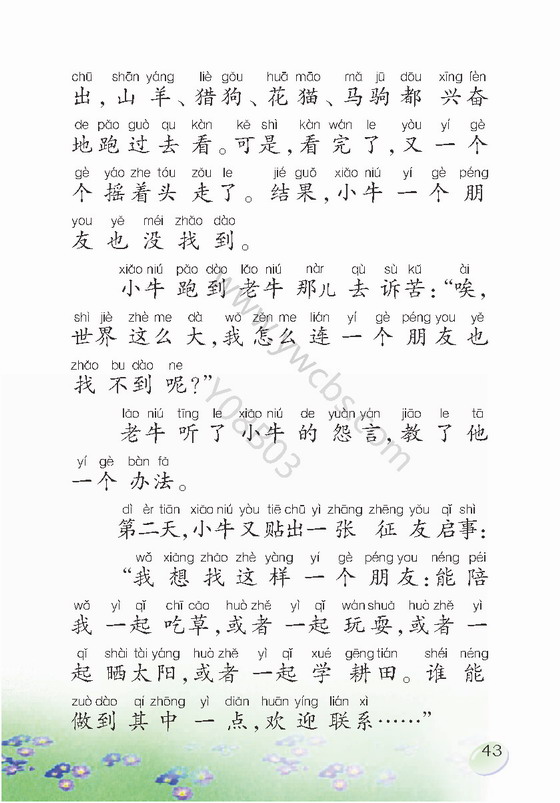 chū shān yáng liè gǒu huā māo mǎ jū dōu xīng fèn
出，山羊、猎狗、花猫、马驹都兴奋
de pǎo guò qu kàn kě shì kàn wán le yòu yí gè
地跑过去看。可是，看完了，又一个
gè yáo zhe tóu zǒu le jié guǒ xiǎo niú yí gè péng
个摇着头走了。结果，小牛一个朋
you yě méi zhǎo dào
友也没找到。
xiǎo niú pǎo dào lǎo niú nàr qù sù kǔ ài
小牛跑到老牛那儿去诉苦：“唉，
shì jiè zhè me dà wǒ zěn me lián yí gè péng you yě
世界这么大，我怎么连一个朋友也
zhǎo bu dào ne
找不到呢？”
lǎo niú tīng le xiǎo niú de yuàn yán jiāo le tā
老牛听了小牛的怨言，教了他
yí gè bàn fǎ
一个办法。
dì èr tiān xiǎo niú yòu tiē chū yì zhāng zhēng yǒu qǐ shì
第二天，小牛又贴出一张征友启事：
wǒ xiǎng zhǎo zhè yàng yí gè péng you néng péi
“我想找这样一个朋友：能陪
wǒ yì qǐ chī cǎo huò zhě yì qǐ wán shuǎ huò zhě yì
我一起吃草，或者一起玩耍，或者一
qǐ shài tài yáng huò zhě yì qǐ xué gēng tián shéi néng
起晒太阳，或者一起学耕田。谁能
zuò dào qí zhōng yì diǎn huān yíng lián xì
做到其中一点，欢迎联系……”
www.ywcbs.com
Y08B03
43